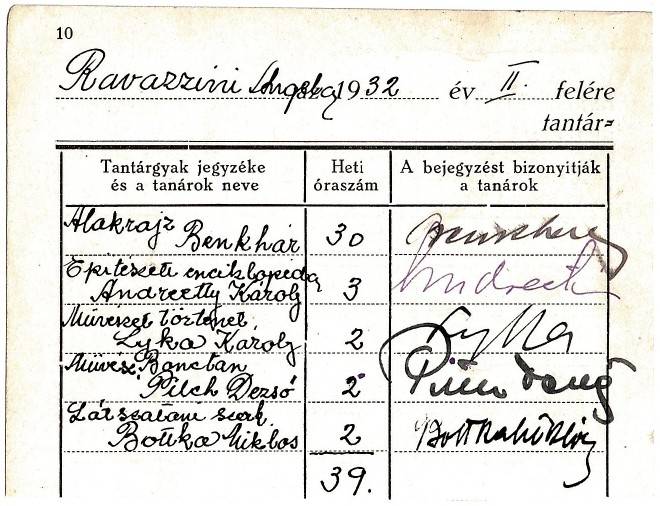 10
Ravazzini Angela 1932 év II. felére
tantár=
Tantárgyak jegyzéke és a tanárok neve
Heti óraszám
A bejegyzést bizonyitják a tanárok
Alakrajz
Benkhár 30
Épitészeti enciklopedia
Andreetty Károly 3
Művészet történet
Lyka Károly 2 Lyka
Művész Bonctan
Pilch Dezső 2
Látszatam szerk.
Bottka Miklos 2 Bottka Miklós
39.